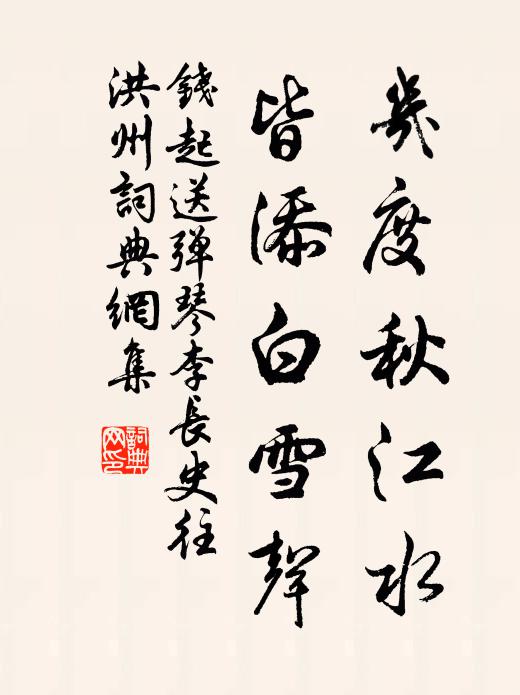 幾度秋江水
皆添白雪聲
錢起送弹琴李長史往
洪州詞典網集
詞典
网印